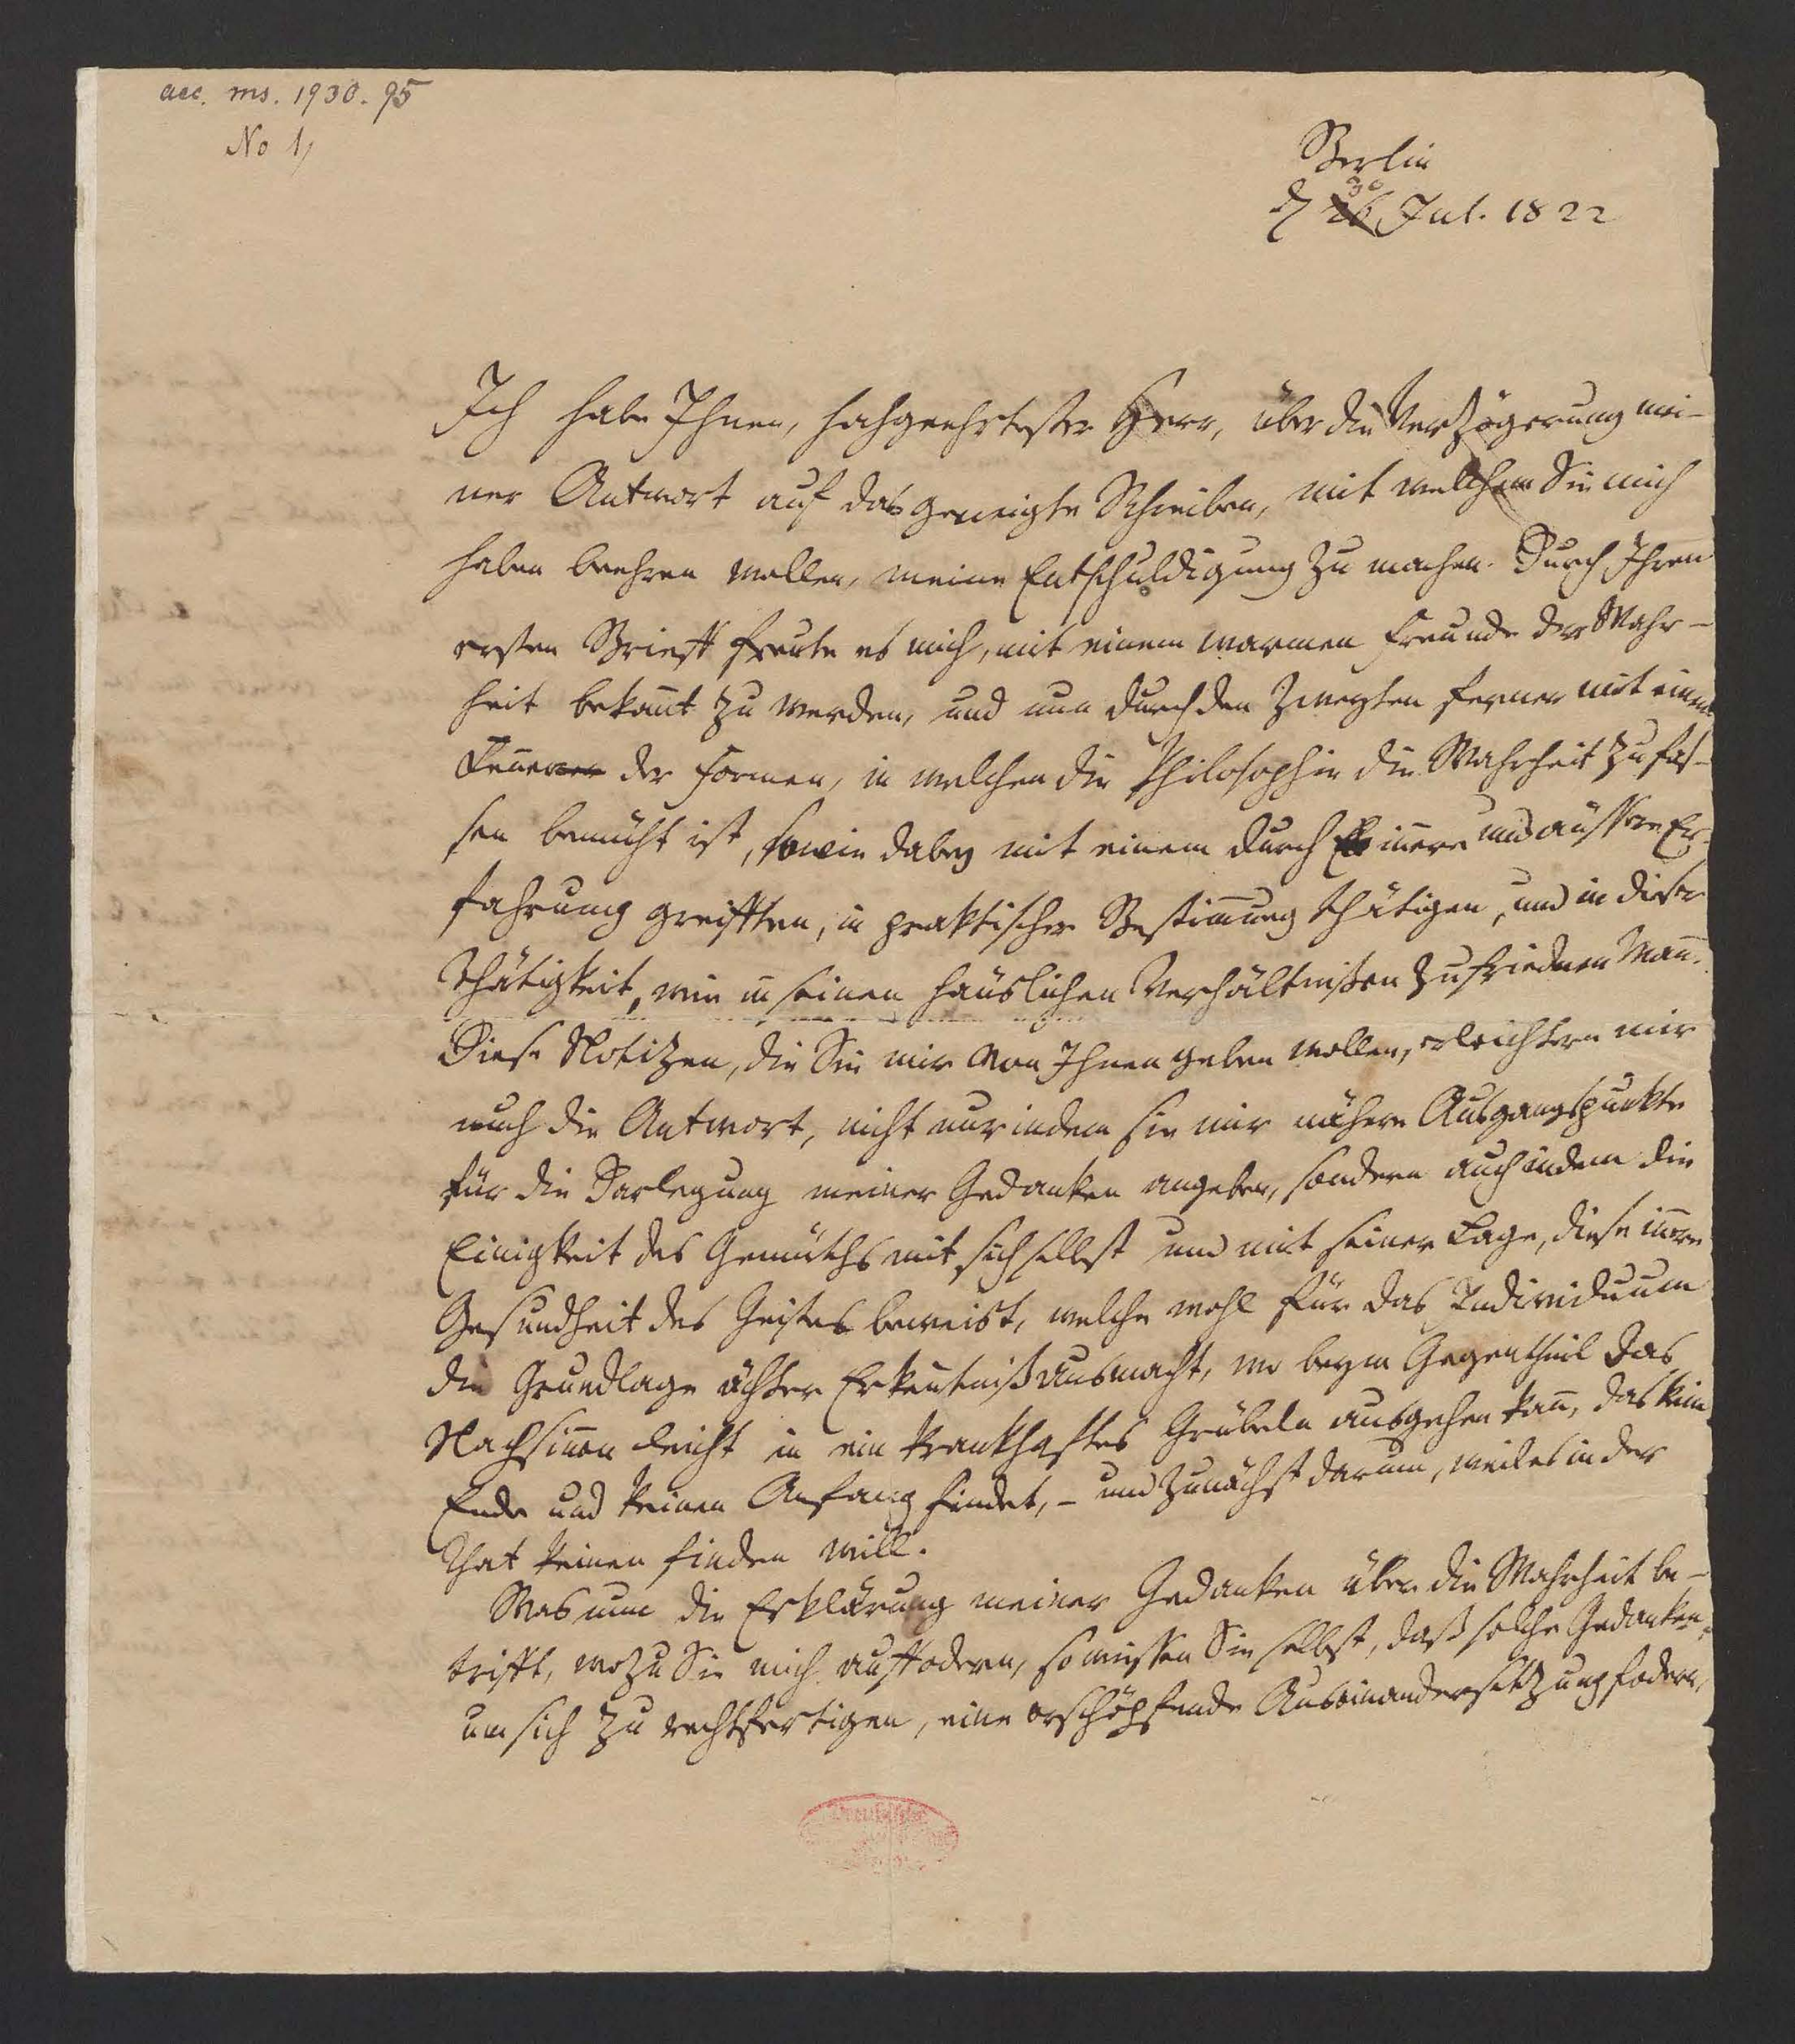 acc. ms. 1930. 95
No 1,
Berlin
30
d 26 Jul. 1822
Ich habe Ihnen, hochgeehrtester Herr, über die Verzögerung mei-
ner Antwort auf das geneigte Schreiben, mit welchem Sie mich
haben beehren wollen, meine Entschuldigung zu machen. Durch Ihren
ersten Brieff freute es mich, mit einem warmen Freunde der Wahr-
heit bekan̄t zu werden, und nun durch den zweyten ferner mit einem
Ken̄er der Formen, in welchen die Philosophie die Wahrheit zu fas-
sen bemüht ist, sowie dabey mit einem durch in̄ere und äussere Er-
fahrung gereifften, in praktischer Bestim̄ung thätigen, und in dieser
Thätigkeit, wie in seinen häuslichen Verhältnißen zufriednen Man̄.
Diese Notizen, die Sie mir von Ihnen geben wollen, erleichtern mir
auch die Antwort, nicht nur indem sie mir nähere Ausgangspunkte
für die Darlegung meiner Gedanken angeben, sondern auch indem die
Einigkeit des Gemüths mit sich selbst und mit seiner Lage, diese in̄ere
Gesundheit des Geistes beweist, welche wohl für das Individuum
die Grundlage ächter Erken̄tniß ausmacht, wo beym Gegentheil das
Nachsin̄en leicht in ein krankhaftes Grübeln ausgehen kan̄, das kein
Ende und keinen Anfang findet, – und zunächst darum, weil es in der
That keinen finden will.
Was nun die Erklärung meiner Gedanken über die Wahrheit be-
trifft, wozu Sie mich auffodern, so wissen Sie selbst, daß solche Gedanken,
um sich zu rechtfertigen, eine erschöpfende Auseinandersetzung fodern,